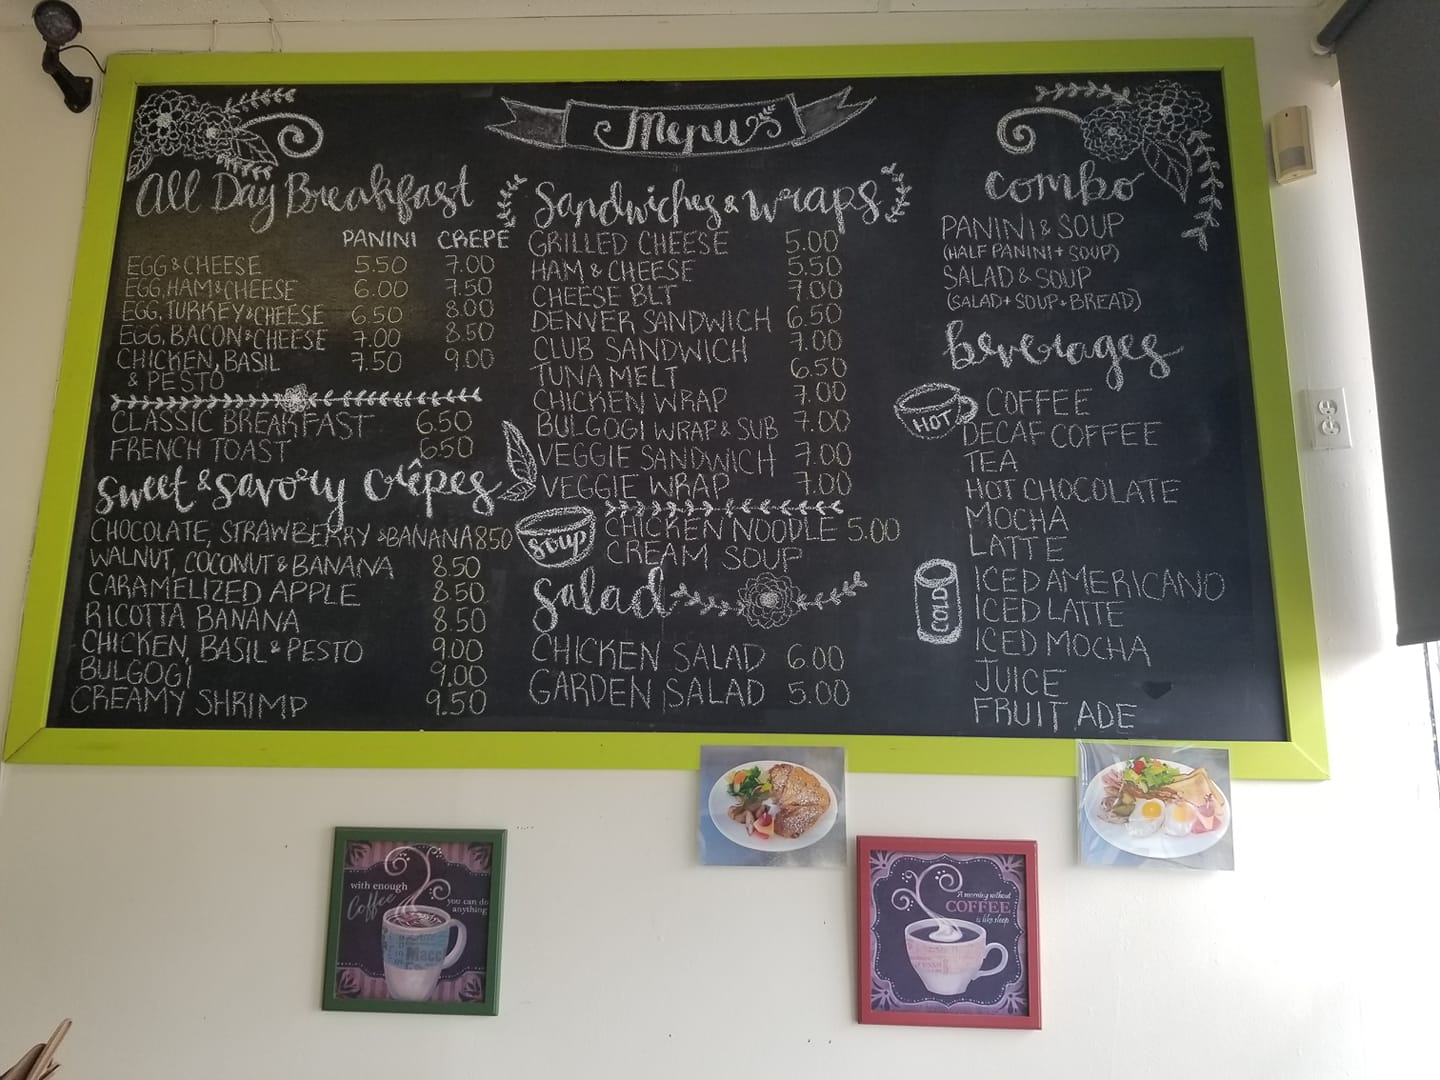 Menu
All Day Breakfast
PANINI CREPE
EGG & CHEESE 5.50 7.00
EGG, HAM & CHEESE 6.00 7.50
EGG, TURKEY & CHEESE 6.50 8.00
EGG, BACON & CHEESE 7.00 8.50
CHICKEN, BASIL 7.50 9.00
& PESTO
CLASSIC BREAKFAST 6.50
FRENCH TOAST 6.50
Sweet & Savory Crêpes
CHOCOLATE, STRAWBERRY & BANANA 8.50
WALNUT, COCONUT & BANANA 8.50
CARAMELIZED APPLE 8.50
RICOTTA BANANA 8.50
CHICKEN, BASIL & PESTO 9.00
BULGOGI 9.00
CREAMY SHRIMP 9.50
Sandwiches & Wraps
GRILLED CHEESE 5.00
HAM & CHEESE 5.50
CHEESE BLT 7.00
DENVER SANDWICH 6.50
CLUB SANDWICH 7.00
TUNA MELT 6.50
CHICKEN WRAP 7.00
BULGOGI WRAP & SUB 7.00
VEGGIE SANDWICH 7.00
VEGGIE WRAP 7.00
Soup
CHICKEN NOODLE 5.00
CREAM SOUP
Salad
CHICKEN SALAD 6.00
GARDEN SALAD 5.00
Combo
PANINI & SOUP
(HALF PANINI + SOUP)
SALAD & SOUP
(SALAD + SOUP + BREAD)
beverages
HOT
COFFEE
DECAF COFFEE
TEA
HOT CHOCOLATE
MOCHA
LATTE
COLD
ICED AMERICANO
ICED LATTE
ICED MOCHA
JUICE
FRUIT ADE
with enough
Coffee
you can do
anything
A morning without
COFFEE
is like sleep